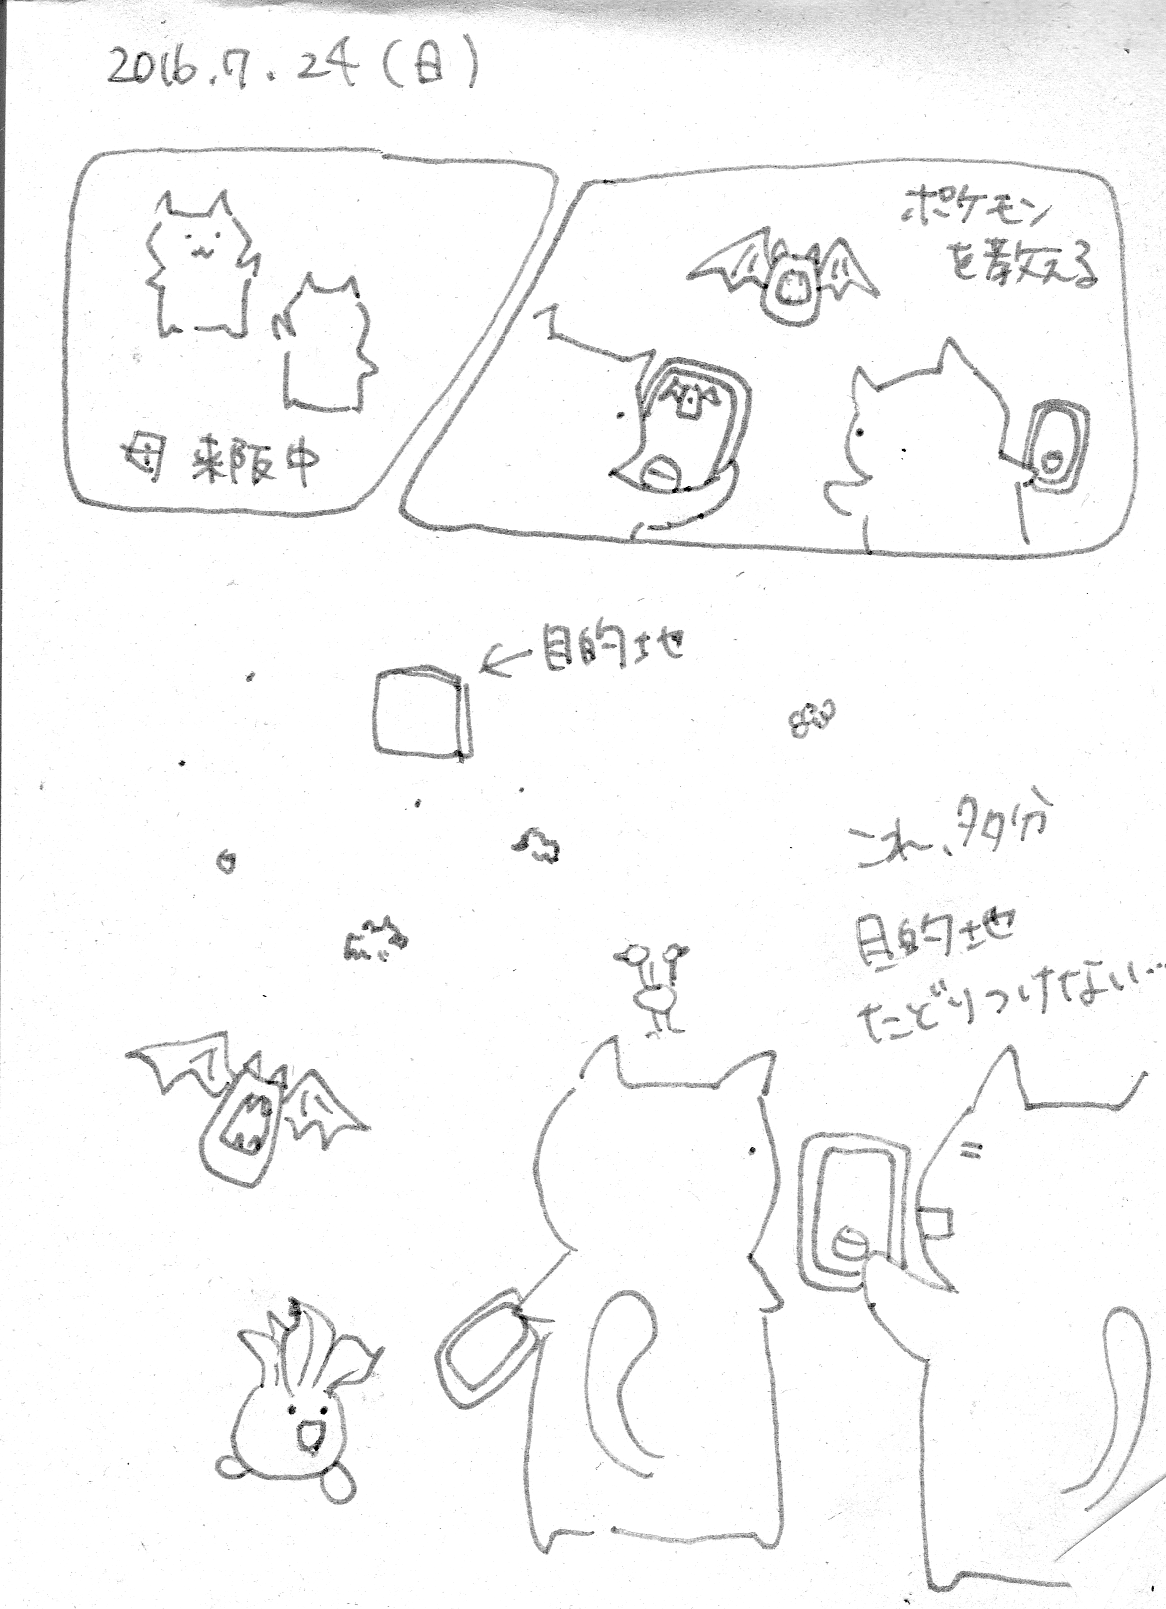 2016.7.24(日)
母 来阪中
ポケモン
を教える
←目的地
これ、多分
目的地
たどりつけない…